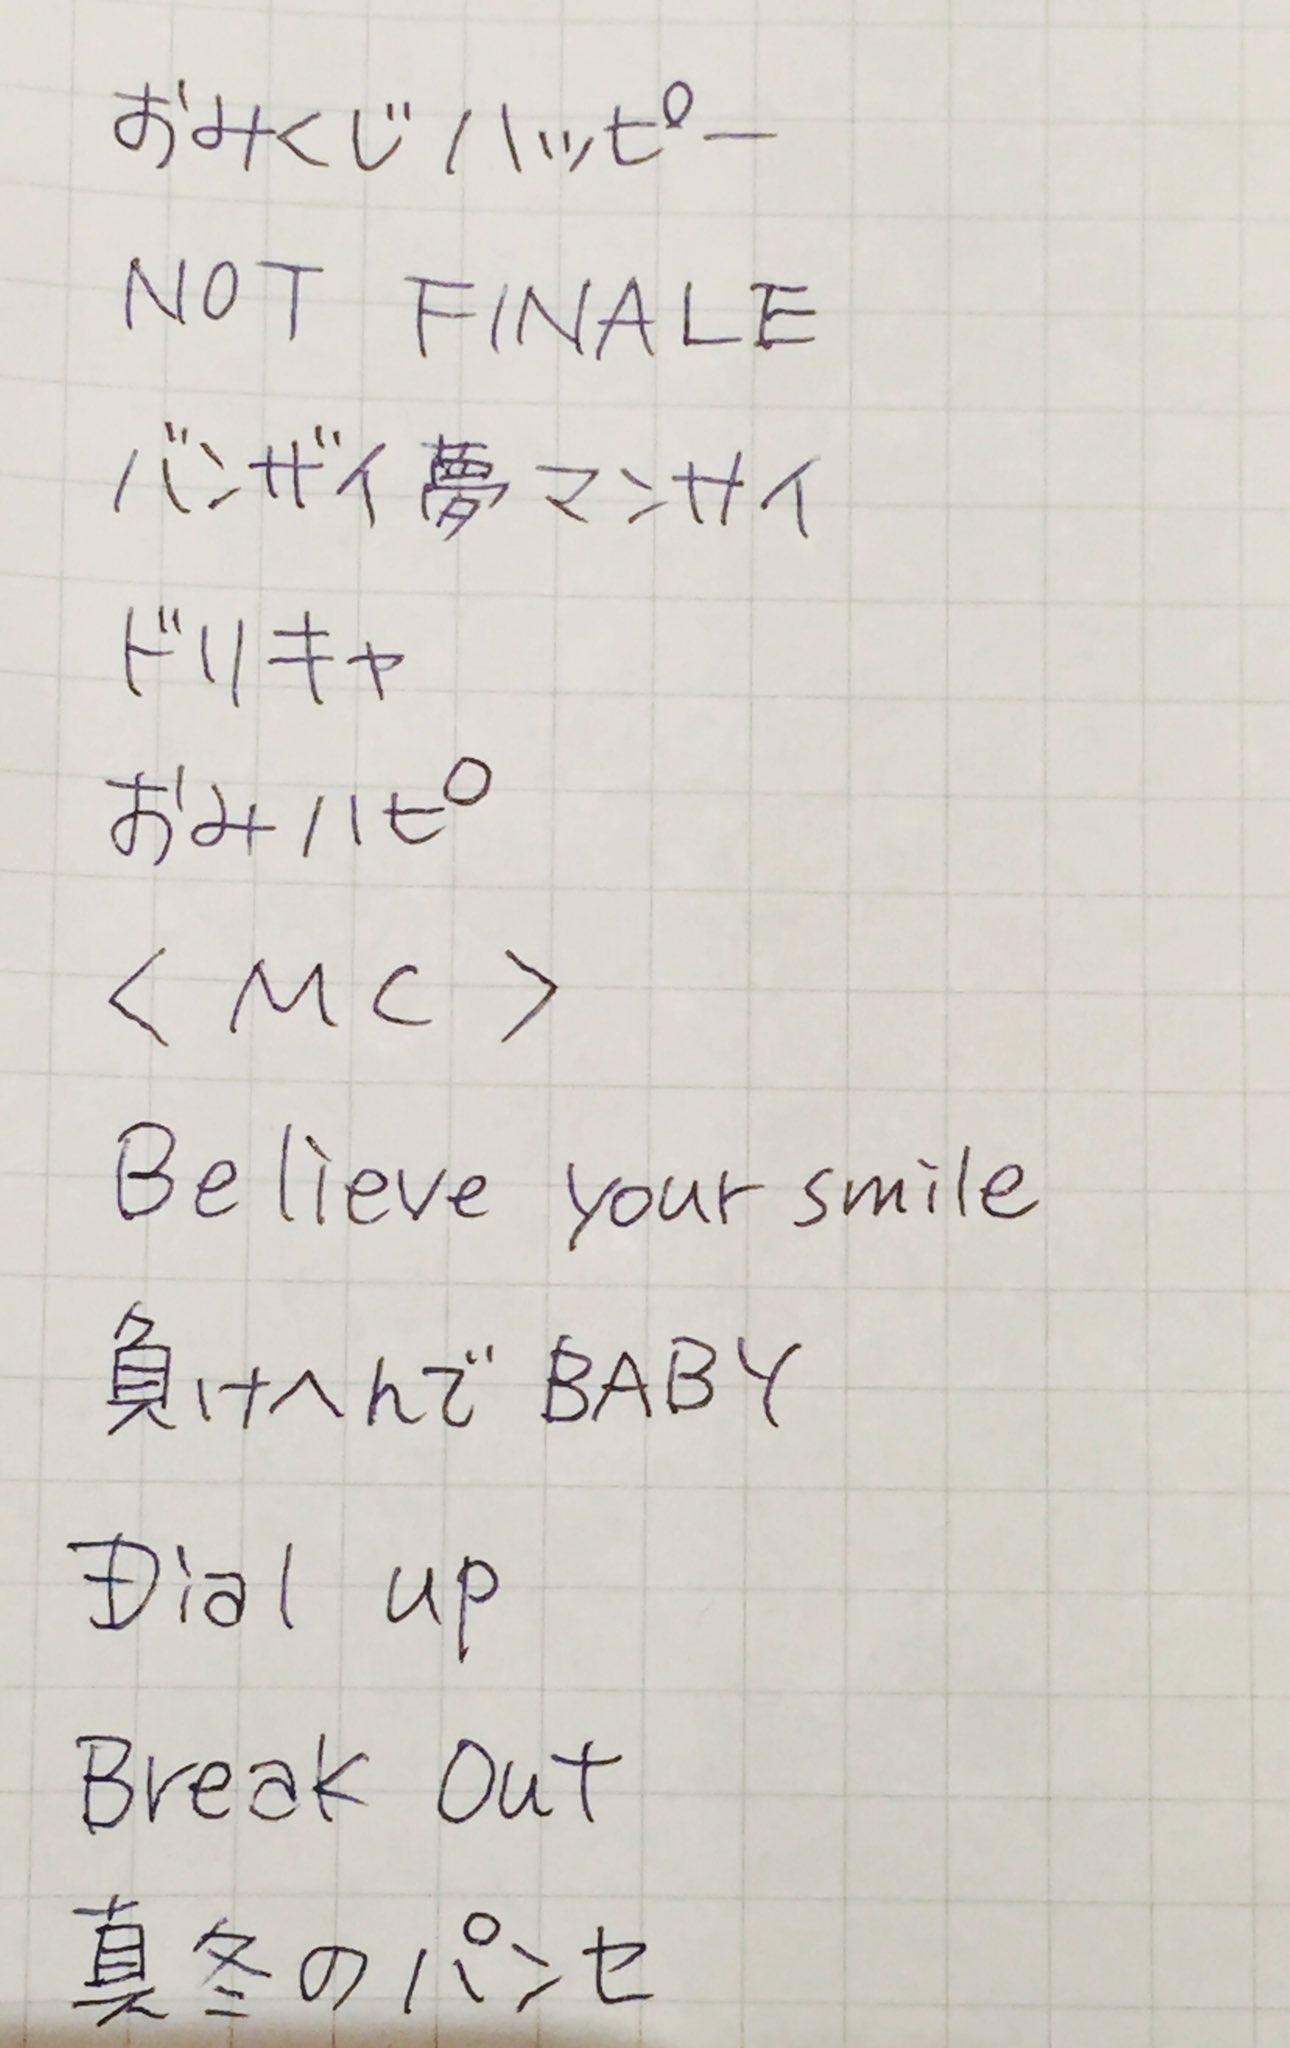 おみくじハッピー
NOT FINALE
バンザイ夢マンサイ
ドリキャ
おみハピ
< MC >
Believe your smile
負けへんで BABY
Dial up
Break Out
真冬のパンセ